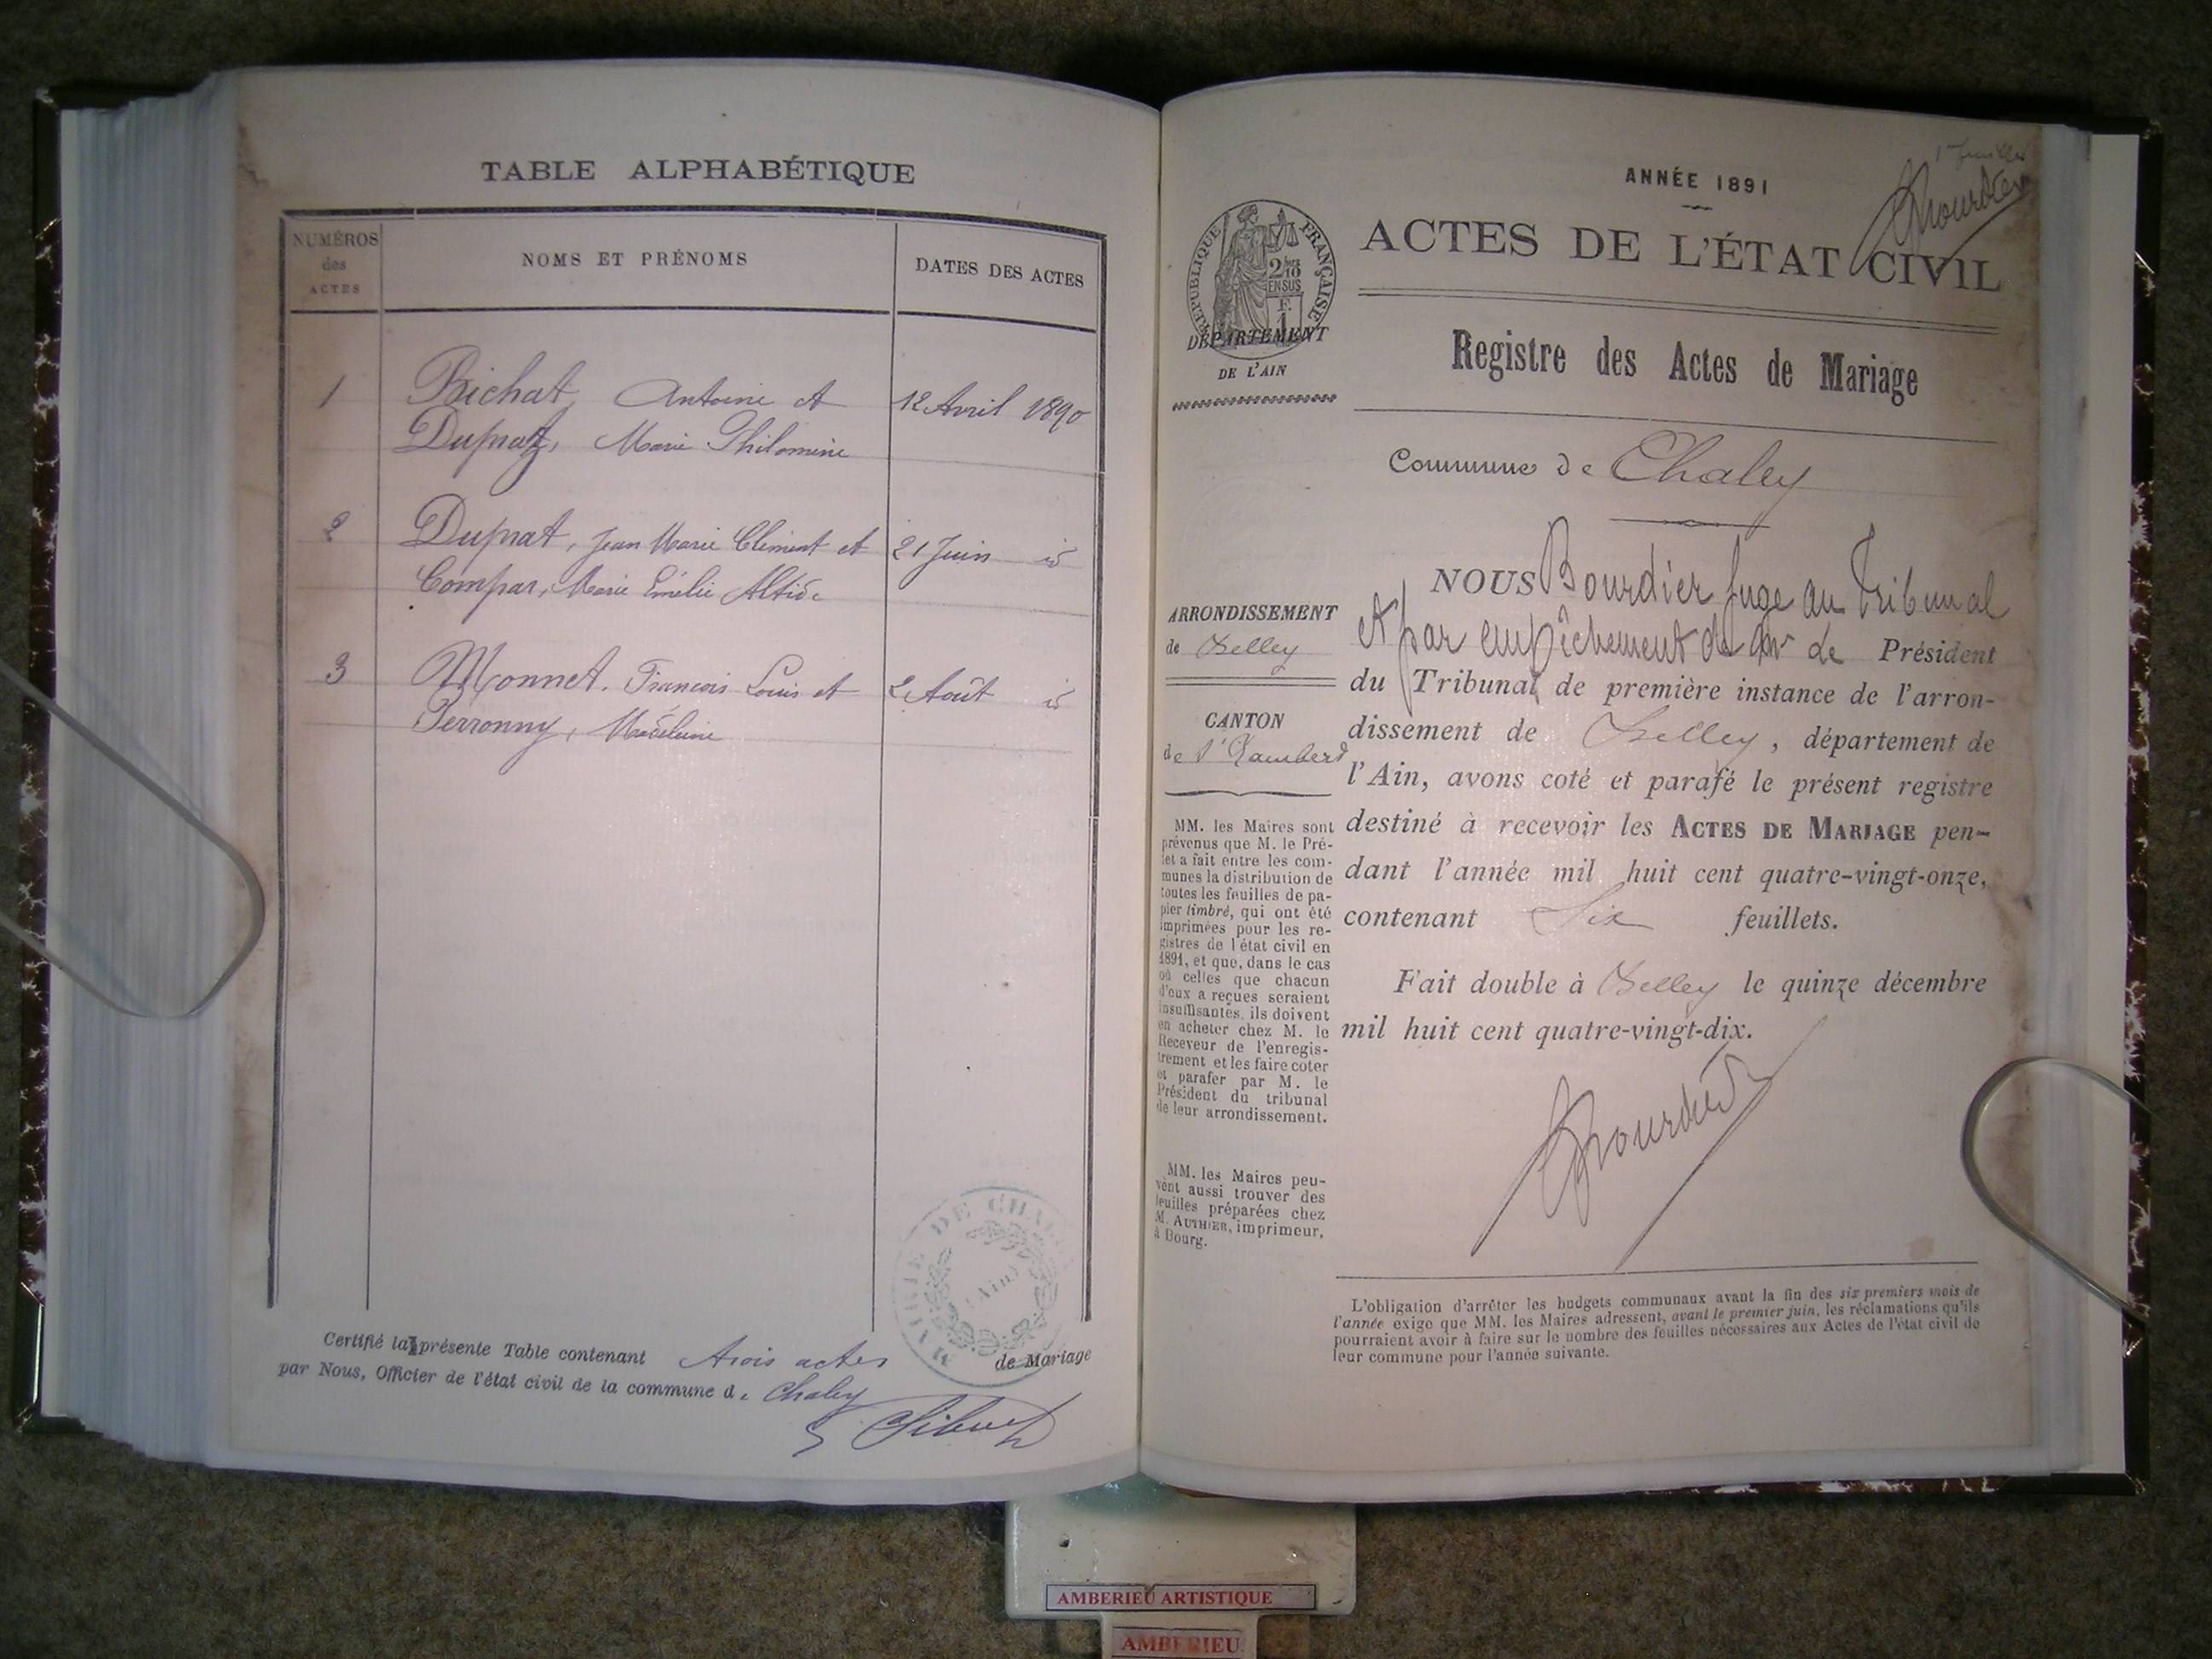 TABLE ALPHABÉTIQUE
NUMÉROS
des
ACTES
NOMS ET PRÉNOMS
DATES DES ACTES
1 Bichat, Antoine et 12 Avril 1890
Dupraz, Marie Philomine
2 Duprat, Jean Marie Clément et 21 Juin id
Compar, Marie Emélie
3 Monnet, François Louis et 2 Août id
Perronny, Madeleine
Certifié la présente Table contenant trois actes de Mariage
par Nous, Officier de l'état civil de la commune de Chaley
MAIRIE DE
(Ain)
ANNÉE 1891
1er feuillet
Bourdier
RÉPUBLIQUE FRANÇAISE
2/10
EN SUS
F.
1
ACTES DE L'ÉTAT CIVIL
DÉPARTEMENT
DE L'AIN
Registre des Actes de Mariage
Commune de Chaley
ARRONDISSEMENT
de Belley
CANTON
de St Rambert
MM. les Maires sont
prévenus que M. le Pré-
fet a fait entre les com-
munes la distribution de
toutes les feuilles de pa-
pier timbré, qui ont été
imprimées pour les re-
gistres de l'état civil en
1891, et que, dans le cas
où celles que chacun
d'eux a reçues seraient
insuffisantes, ils doivent
en acheter chez M. le
Receveur de l'enregis-
trement et les faire coter
et parafer par M. le
Président du tribunal
de leur arrondissement.
MM. les Maires peu-
vent aussi trouver des
feuilles préparées chez
M. AUTHIER, imprimeur,
à Bourg.
NOUS Bourdier Juge au Tribunal
et par empêchement de Mr Le Président
du Tribunal de première instance de l'arron-
dissement de Belley, département de
l'Ain, avons coté et parafé le présent registre
destiné à recevoir les ACTES DE MARIAGE pen-
dant l'année mil huit cent quatre-vingt-onze,
contenant Six feuillets.
Fait double à Belley le quinze décembre
mil huit cent quatre-vingt-dix.
Bourdier
L'obligation d'arrêter les budgets communaux avant la fin des six premiers mois de
l'année exige que MM. les Maires adressent, avant le premier juin, les réclamations qu'ils
pourraient avoir à faire sur le nombre des feuilles nécessaires aux Actes de l'état civil de
leur commune pour l'année suivante.
AMBERIEU ARTISTIQUE
AMBERIEU